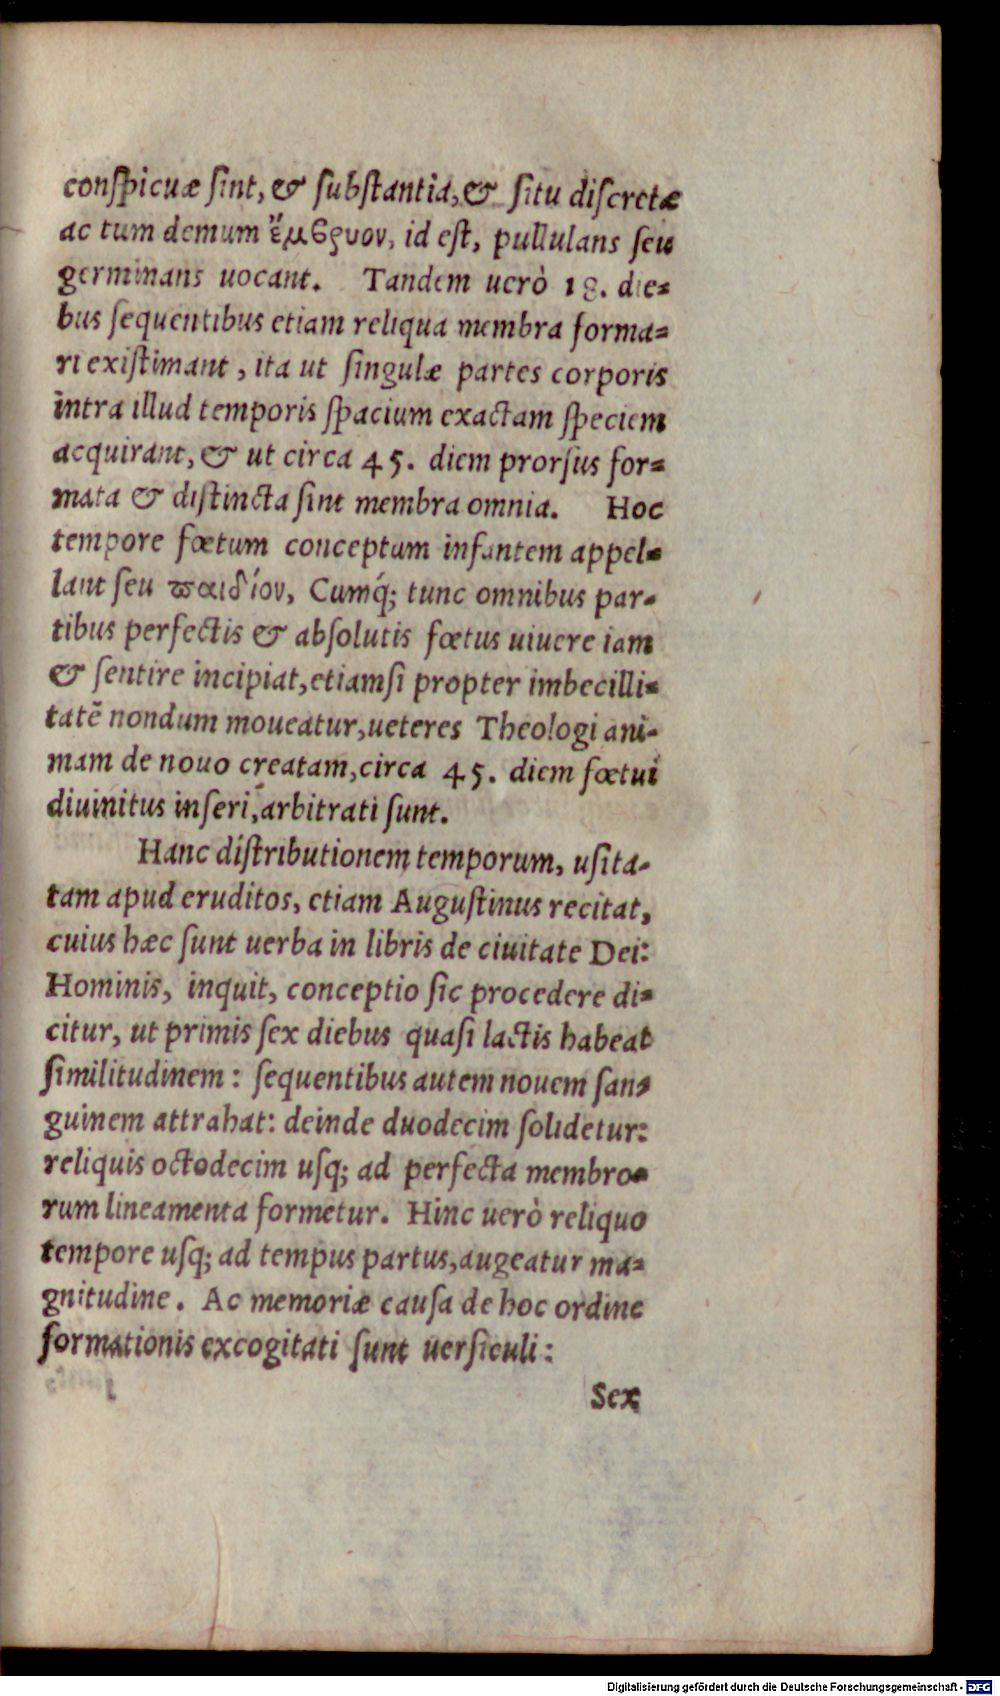 conſpicuæ ſint, & ſubſtantia, & ſitu diſcretæ
ac tum demum ἔμβρυον, id eſt, pullulans ſeu
germinans uocant. Tandem uerò 18. die-
bus ſequentibus etiam reliqua membra forma-
ri exiſtimant, ita ut ſingulæ partes corporis
intra illud temporis ſpacium exactam ſpeciem
acquirant, & ut circa 45. diem prorſus for-
mata & diſtincta ſint membra omnia. Hoc
tempore fœtum conceptum infantem appel-
lant ſeu παιδίον, Cumq́; tunc omnibus par-
tibus perfectis & abſolutis fœtus uiuere iam
& ſentire incipiat, etiamſi propter imbecilli-
tatē nondum moueatur, ueteres Theologi ani-
mam de nouo creatam, circa 45. diem fœtui
diuinitus inſeri, arbitrati ſunt.
Hanc diſtributionem temporum, uſita-
tam apud eruditos, etiam Auguſtinus recitat,
cuius hæc ſunt uerba in libris de ciuitate Dei:
Hominis, inquit, conceptio ſic procedere di-
citur, ut primis ſex diebus quaſi lactis habeat
ſimilitudinem: ſequentibus autem nouem ſan-
guinem attrahat: deinde duodecim ſolidetur:
reliquis octodecim uſq; ad perfecta membro-
rum lineamenta formetur. Hinc uerò reliquo
tempore uſq; ad tempus partus, augeatur ma-
gnitudine. Ac memoriæ cauſa de hoc ordine
formationis excogitati ſunt uerſiculi:
Sex
Digitalisierung gefördert durch die Deutsche Forschungsgemeinschaft - DFG